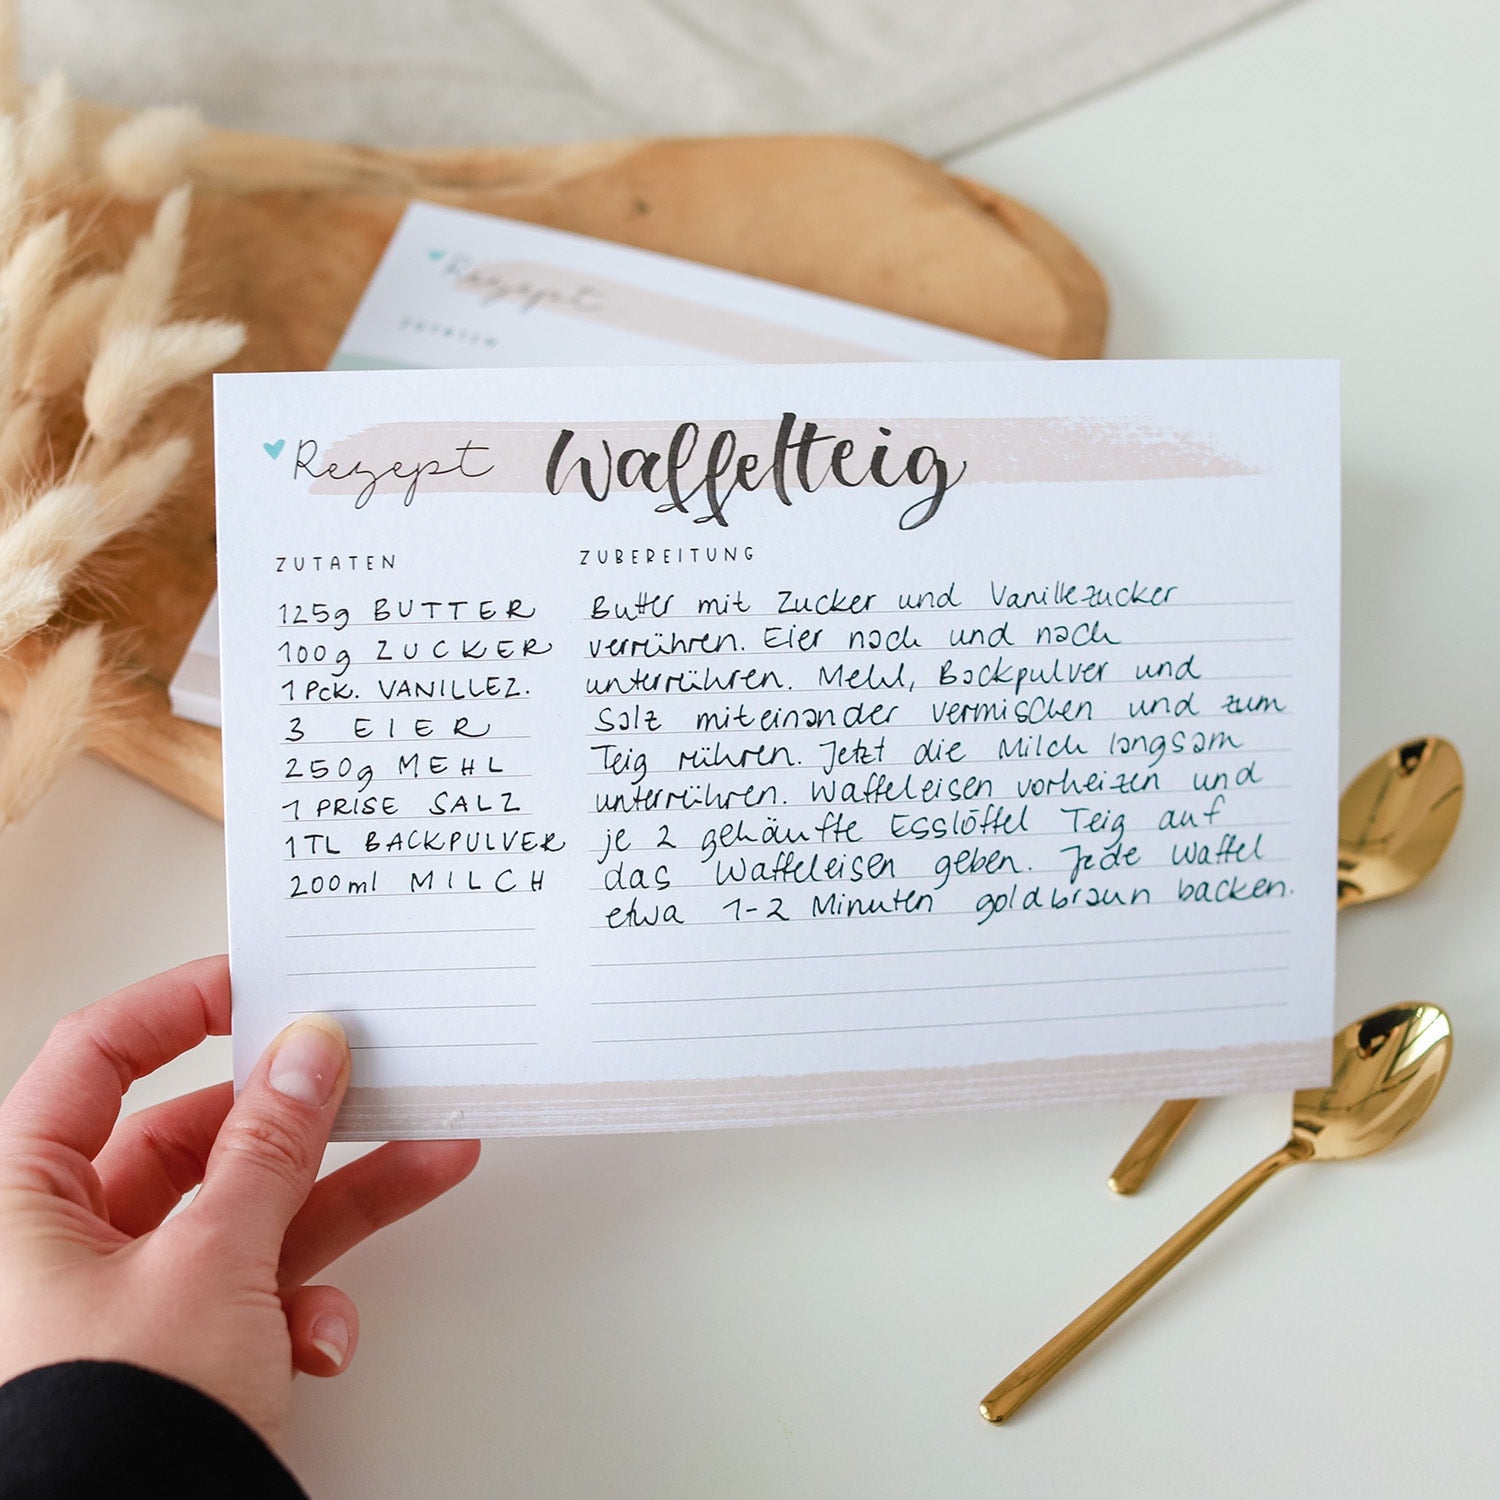 Rezept
ZUTATEN
Rezept Waffelteig
ZUTATEN
125g BUTTER
100g ZUCKER
1 Pck. VANILLEZ.
3 EIER
250g MEHL
1 PRISE SALZ
1TL BACKPULVER
200ml MILCH
ZUBEREITUNG
Butter mit Zucker und Vanillezucker
verrühren. Eier nach und nach
unterrühren. Mehl, Backpulver und
Salz miteinander vermischen und zum
Teig rühren. Jetzt die Milch langsam
unterrühren. Waffeleisen vorheizen und
je 2 gehäufte Esslöffel Teig auf
das Waffeleisen geben. Jede Waffel
etwa 1-2 Minuten goldbraun backen.